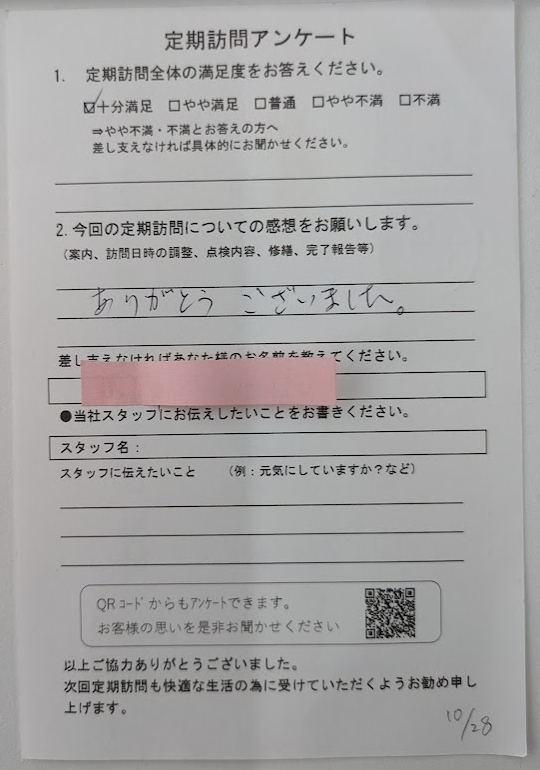 定期訪問アンケート
1. 定期訪問全体の満足度をお答えください。
☑十分満足 □やや満足 □普通 □やや不満 □不満
⇒やや不満・不満とお答えの方へ
差し支えなければ具体的にお聞かせください。
2. 今回の定期訪問についての感想をお願いします。
(案内、訪問日時の調整、点検内容、修繕、完了報告等)
ありがとう ございました。
差し支えなければあなた様のお名前を教えてください。
●当社スタッフにお伝えしたいことをお書きください。
スタッフ名:
スタッフに伝えたいこと (例:元気にしていますか?など)
QRコードからもアンケートできます。
お客様の思いを是非お聞かせください
以上ご協力ありがとうございました。
次回定期訪問も快適な生活の為に受けていただくようお勧め申し
上げます。
10/28